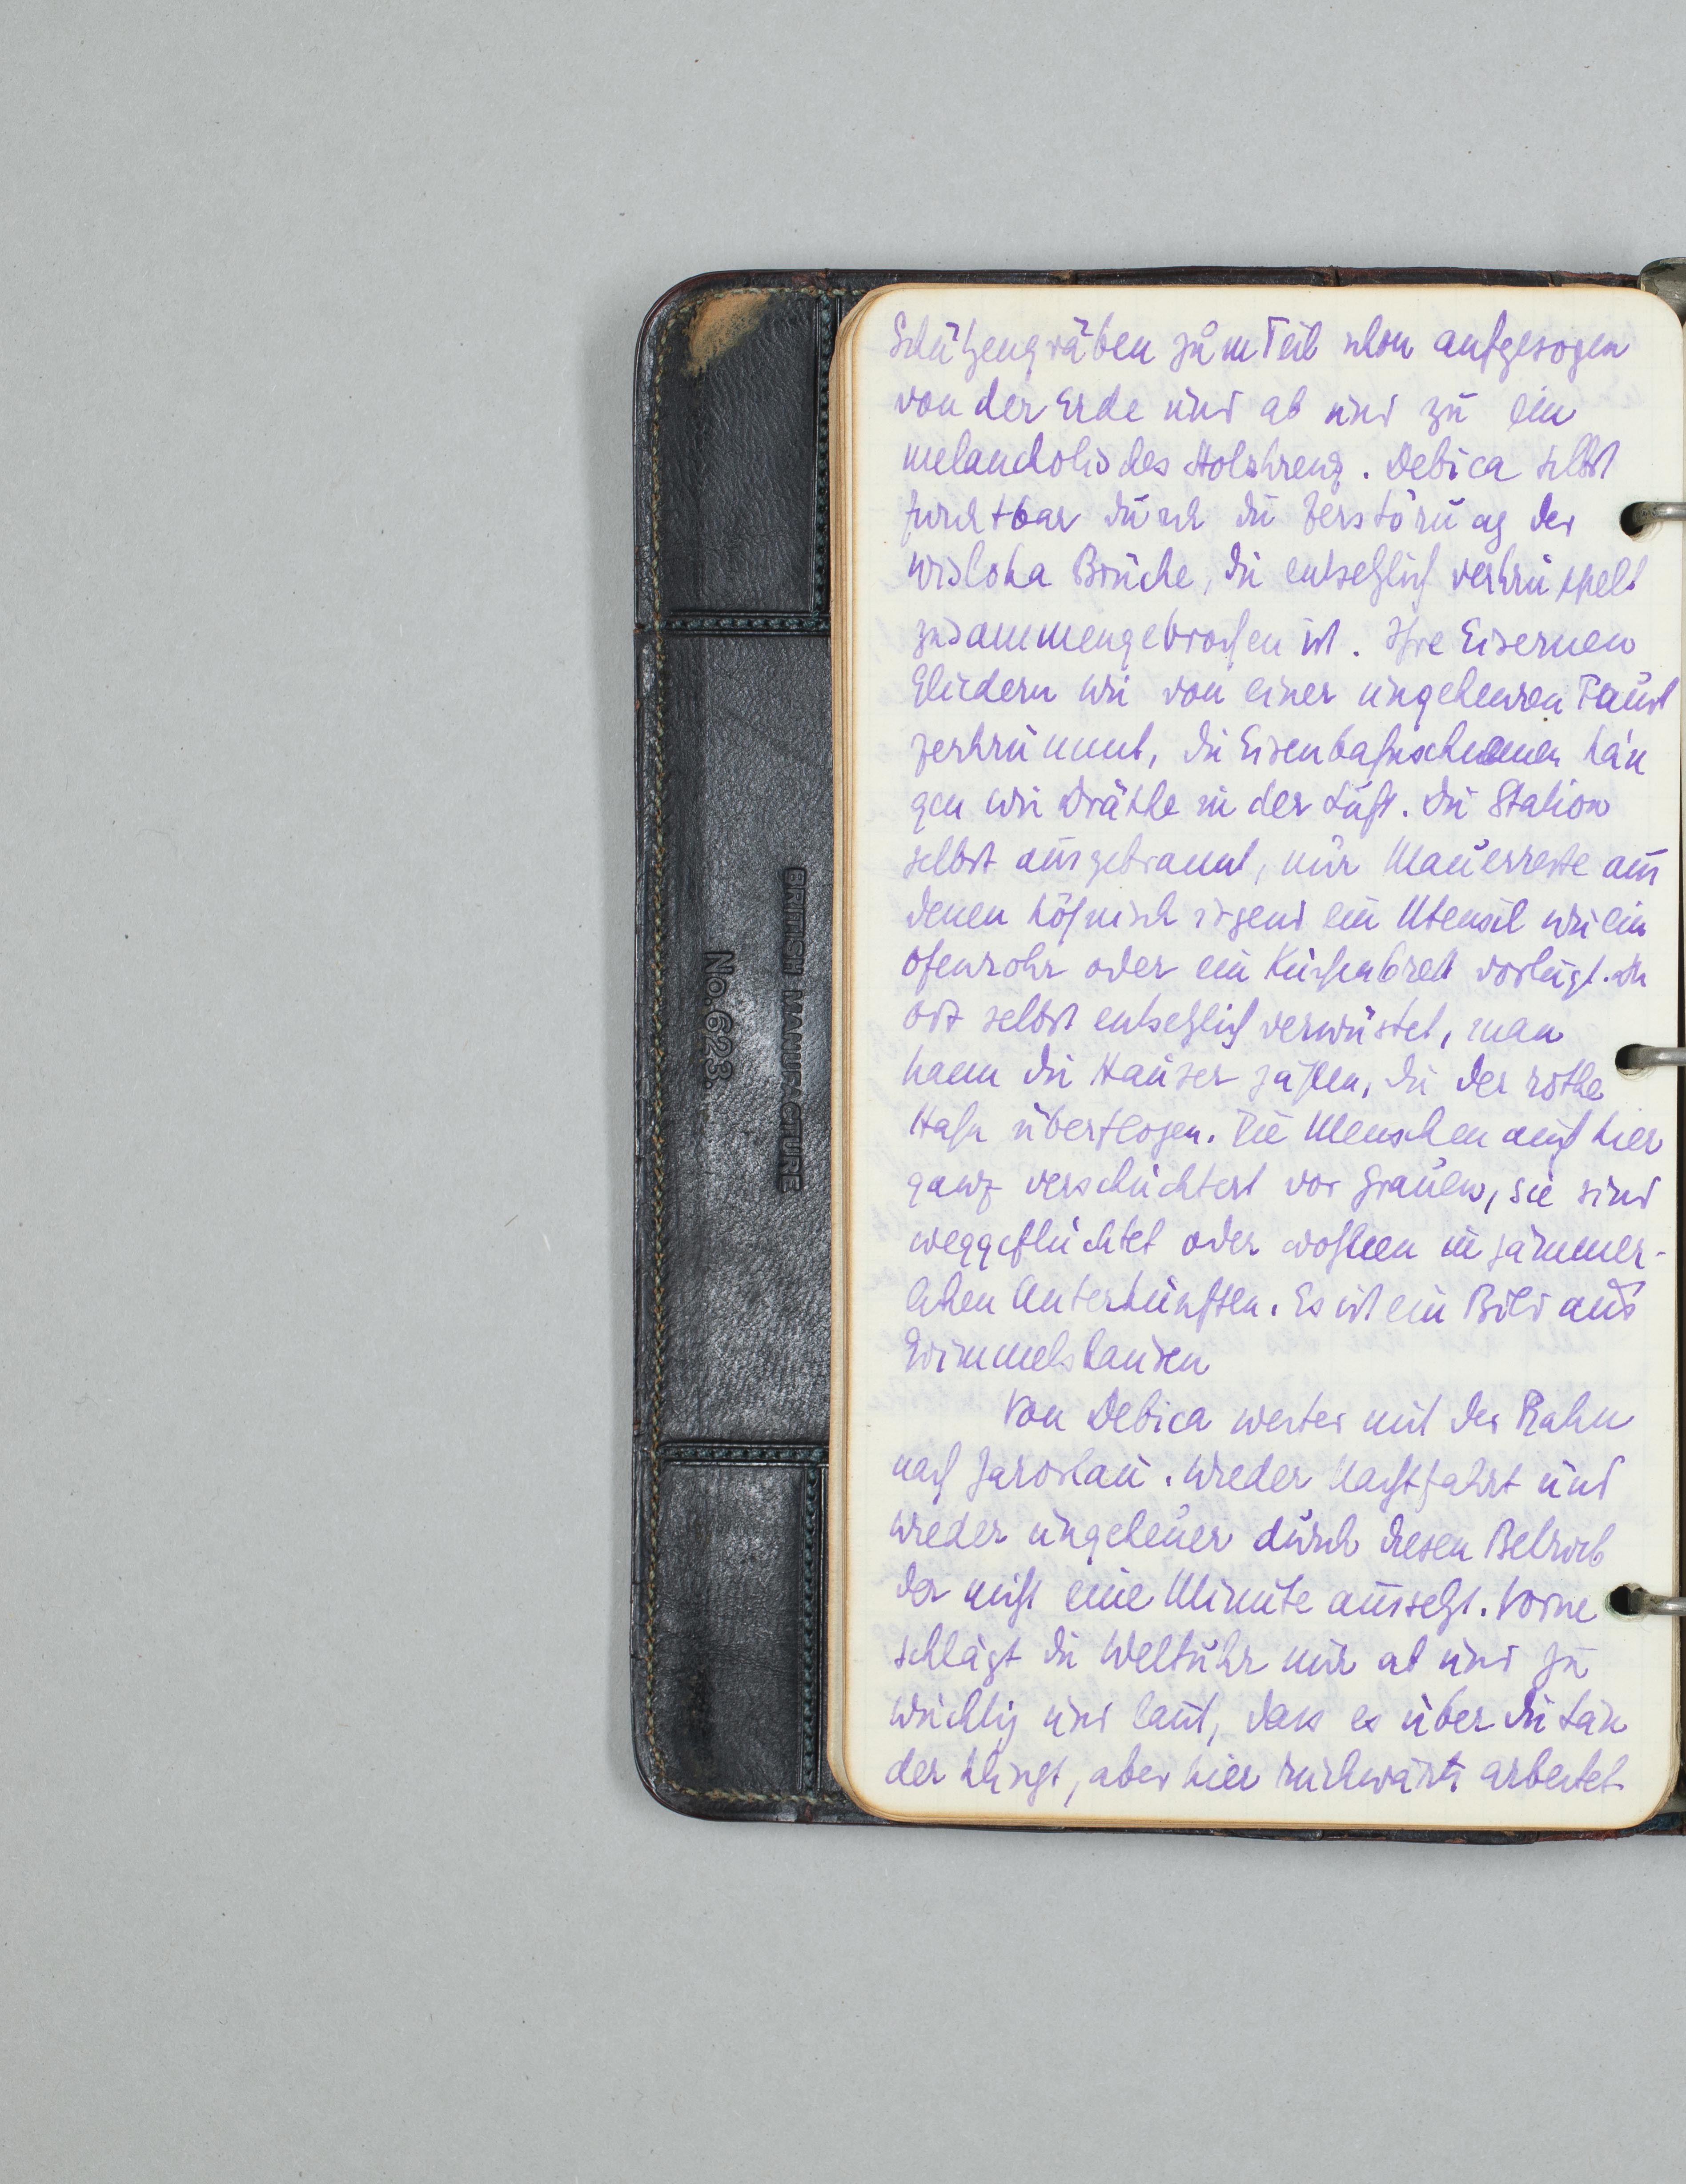 Schützengräben zum Teil schon aufgesogen
von der Erde und ab und zu ein
melancholisches Holzkreuz. Debica selbst
furchtbar durch die Zerstörung der
Wisloka Brücke, die entsetzlich verkrüppelt
zusammengebrochen ist. Ihre Eisernen
Gliedern wie von einer ungeheuren Faust
zerkrümmt, die Eisenbahnschienen hän
gen wie Dräthe in der Luft. Die Station
selbst ausgebrannt, nur Mauerreste aus
denen höhnisch irgend ein Utensil wie ein
Ofenrohr oder ein Küchenbrett vorlugt. Der
Ort selbst entsetzlich verwüstet, man
kann die Häuser zählen, die der rothe
Hahn überflogen. Die Menschen auch hier
ganz verschüchtert vor Grauen, sie sind
weggeflüchtet oder wohnen in jämmer-
lichen Unterkünften. Es ist ein Bild aus
Grimmelshausen
Von Debica weiter mit der Bahn
nach Jaroslau. Wieder Nachtfahrt und
wieder ungeheuer durch diesen Betrieb
der nicht eine Minute aussetzt. Vorne
schlägt die Weltuhr nur ab und zu
wuchtig und laut, dass es über die Län
der klingt, aber hier rückwärts arbeitet
BRITISH MANUFACTURE
No. 623.